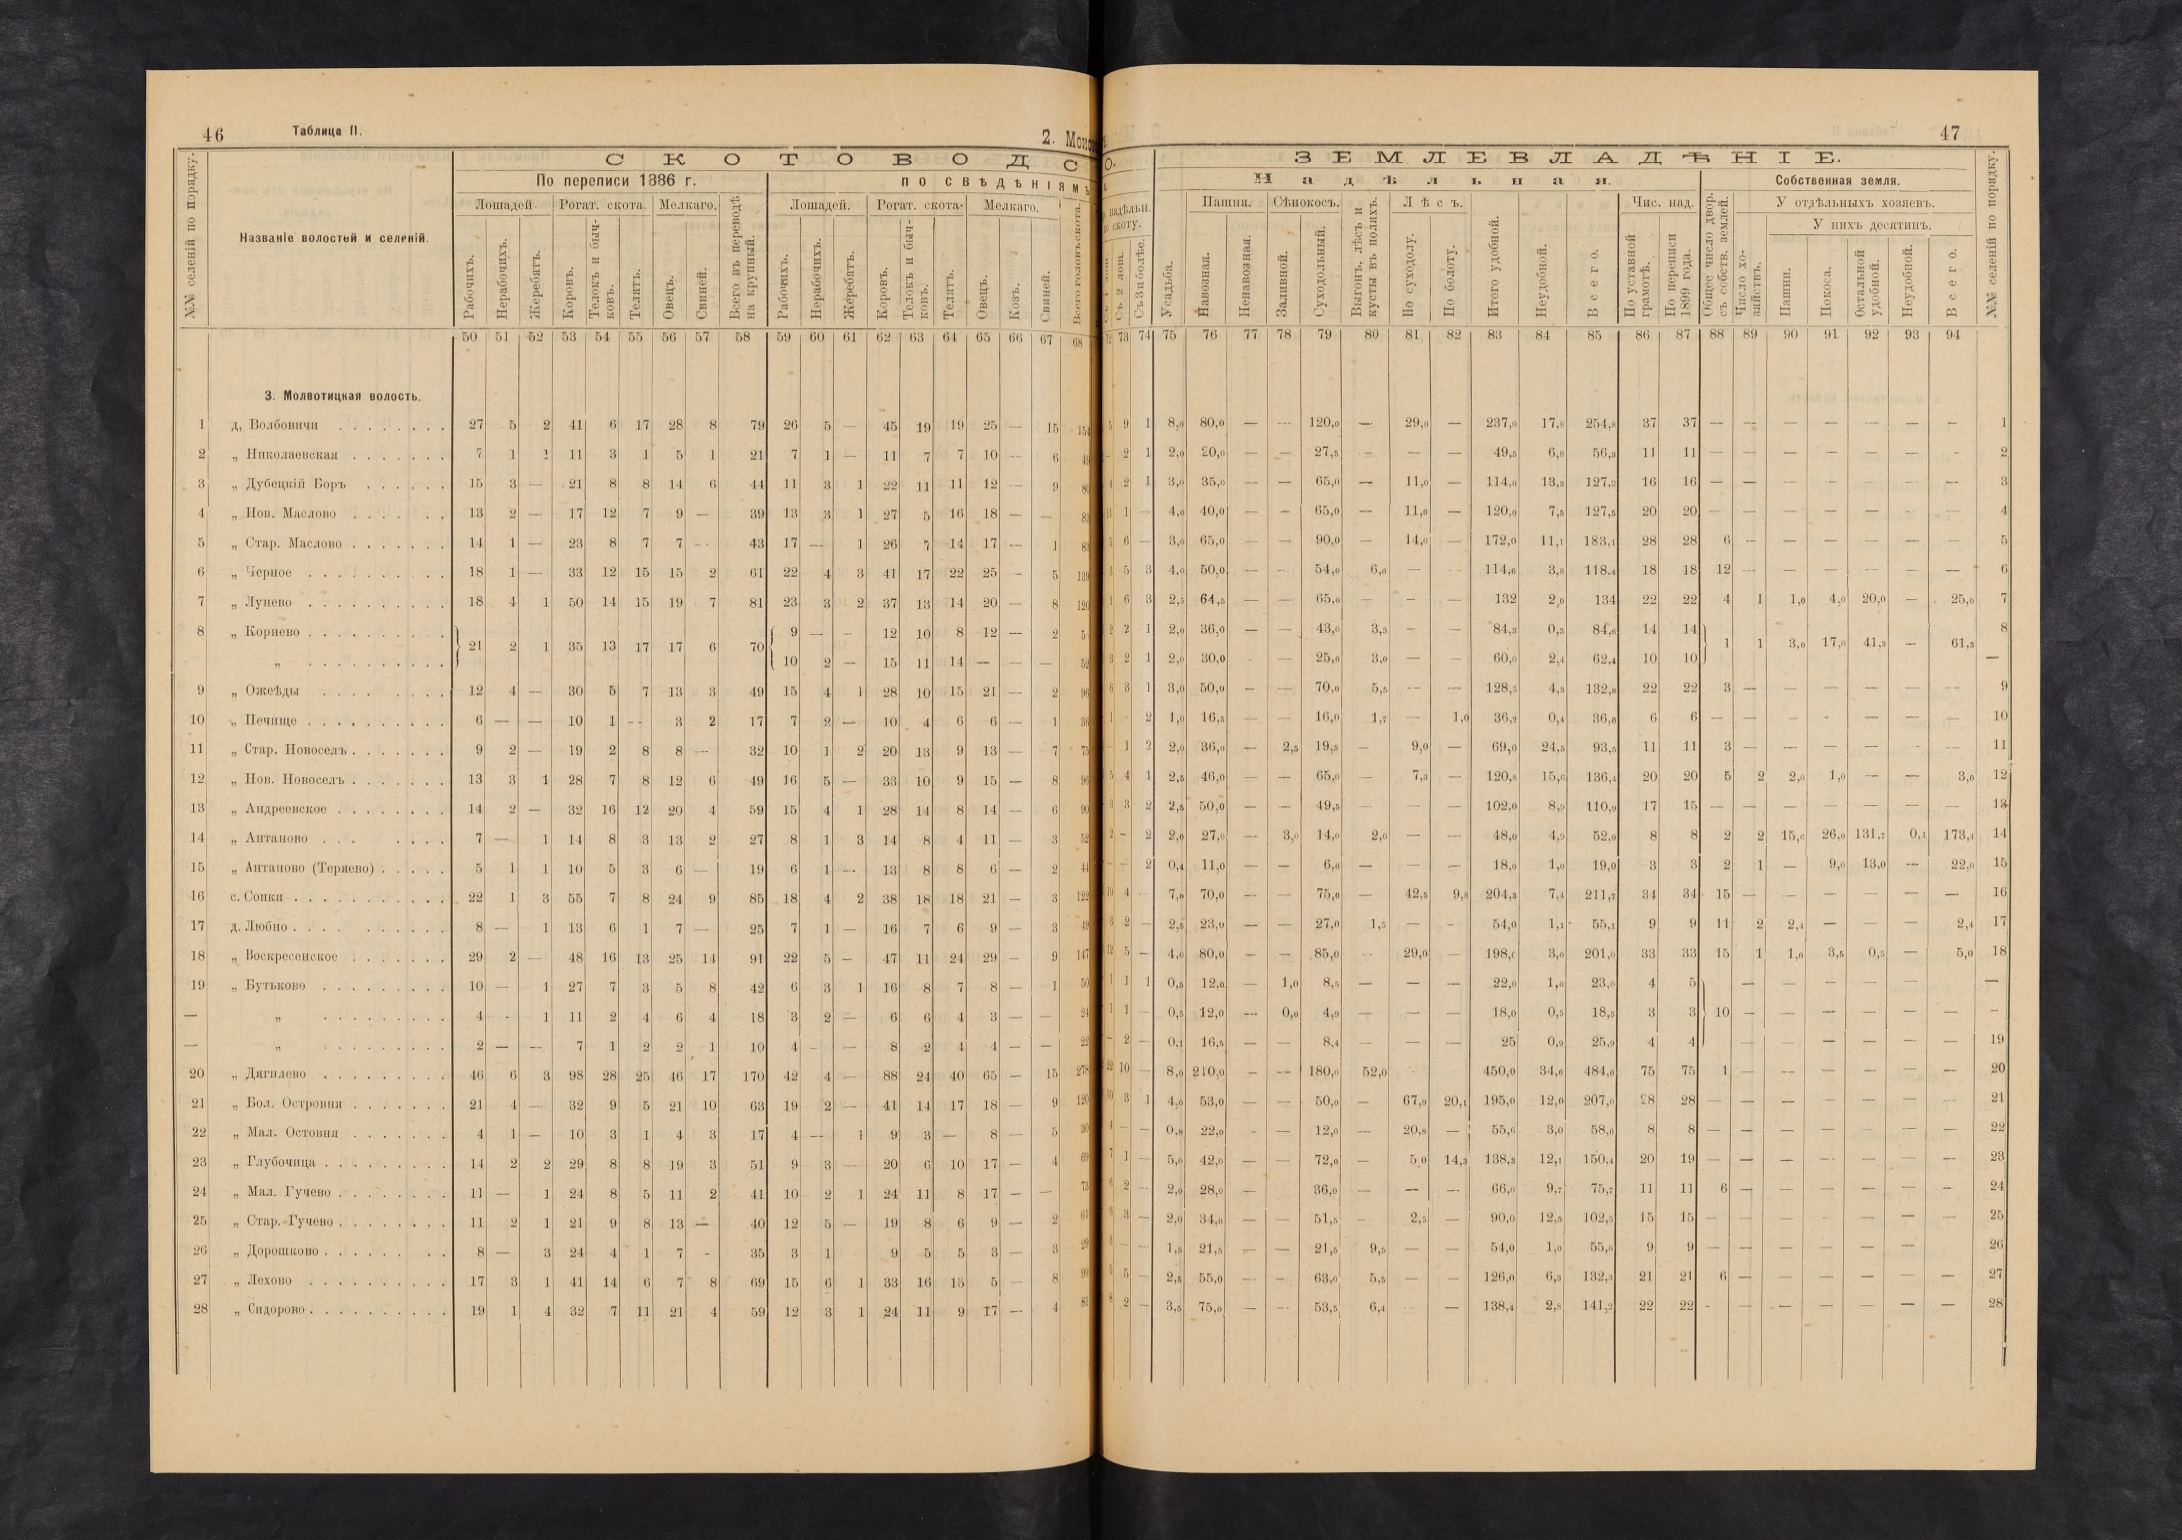 46 Таблица II. 2. Моло
С К О Т О В О Д С
По переписи 1886 г. по свѣдѣніямъ
Лошадей. Рогат. скота. Мелкаго. Лошадей. Рогат. скота. Мелкаго.
№№ селеній по порядку. Названіе волостей и селеній. Рабочихъ. Нерабочихъ. Жеребятъ. Коровъ. Телокъ и бычковъ. Телятъ. Овецъ. Свиней. Всего въ переводѣ на крупный. Рабочихъ. Нерабочихъ. Жеребятъ. Коровъ. Телокъ и бычковъ. Телятъ. Овецъ. Козъ. Свиней. Всего головъ скота.
50 51 52 53 54 55 56 57 58 59 60 61 62 63 64 65 66 67 68
3. Молвотицкая волость.
1 д. Волбовичи 27 5 2 41 6 17 28 8 79 26 5 — 45 19 19 25 — 15 154
2 „ Николаевская 7 1 1 11 3 1 5 1 21 7 1 — 11 7 7 10 — 6
3 „ Дубецкій Боръ 15 3 — 21 8 8 14 6 44 11 3 1 22 11 11 12 — 9
4 „ Нов. Маслово 13 2 — 17 12 7 9 — 39 13 3 1 27 5 16 18 — —
5 „ Стар. Маслово 14 1 — 23 8 7 7 -- 43 17 — 1 26 7 14 17 — 1
6 „ Черное 18 1 — 33 12 15 15 2 61 22 4 3 41 17 22 25 — 5 139
7 „ Лунево 18 4 1 50 14 15 19 7 81 23 3 2 37 13 14 20 — 8 120
8 „ Корнево 21 2 1 35 13 17 17 6 70 9 — — 12 10 8 12 — 2
„ 10 2 — 15 11 14 — — — 52
9 „ Ожеѣды 12 4 — 30 5 7 13 3 49 15 4 1 28 10 15 21 — 2 96
10 „ Печище 6 — — 10 1 -- 3 2 17 7 2 — 10 4 6 6 — 1 36
11 „ Стар. Новоселъ 9 2 — 19 2 8 8 — 32 10 1 2 20 13 9 13 — 7 75
12 „ Нов. Новоселъ 13 3 1 28 7 8 12 6 49 16 5 — 33 10 9 15 — 8 96
13 „ Андреевское 14 2 — 32 16 12 20 4 59 15 4 1 28 14 8 14 — 6 90
14 „ Антаново 7 — 1 14 8 3 13 2 27 8 1 3 14 8 4 11 — 3 52
15 „ Антаново (Теряево) 5 1 1 10 5 3 6 — 19 6 1 -- 13 8 8 6 — 2 44
16 с. Сопки 22 1 3 55 7 8 24 9 85 18 4 2 38 18 18 21 — 3 122
17 д. Любно 8 — 1 13 6 1 7 — 25 7 1 — 16 7 6 9 — 3 49
18 „ Воскресенское 29 2 — 48 16 13 25 14 91 22 5 — 47 11 24 29 — 9 147
19 „ Бутьково 10 — 1 27 7 3 5 8 42 6 3 1 16 8 7 8 — 1 50
— „ 4 - 1 11 2 4 6 4 18 3 2 — 6 6 4 3 — — 24
— „ 2 — — 7 1 2 2 1 10 4 — — 8 2 4 4 — — 22
20 „ Дягилево 46 6 3 98 28 25 46 17 170 42 4 — 88 24 40 65 — 15 278
21 „ Бол. Островня 21 4 — 32 9 5 21 10 63 19 2 — 41 14 17 18 — 9 120
22 „ Мал. Остовня 4 1 — 10 3 1 4 3 17 4 -- 1 9 3 — 8 — 5 30
23 „ Глубочица 14 2 2 29 8 8 19 3 51 9 3 — 20 6 10 17 — 4 69
24 „ Мал. Гучево 11 — 1 24 8 5 11 2 41 10 2 1 24 11 8 17 — — 73
25 „ Стар. Гучево 11 2 1 21 9 8 13 — 40 12 5 — 19 8 6 9 — 2 61
26 „ Дорошково 8 — 3 24 4 1 7 - 35 3 1 9 5 5 3 — 3 29
27 „ Лехово 17 3 1 41 14 6 7 8 69 15 6 1 33 16 15 5 — 8 99
28 „ Сидорово 19 1 4 32 7 11 21 4 59 12 3 1 24 11 9 17 — 4 81
47
О. З Е М Л Е В Л А Д Ѣ Н І Е.
Н а д ѣ л ь н а я. Собственная земля.
надѣльн. скоту. Пашня. Сѣнокосъ. Л ѣ с ъ. Чис. над. У отдѣльныхъ хозяевъ.
У нихъ десятинъ.
Съ 2 лош. Съ 3 и болѣе. Усадьба. Навозная. Ненавозная. Заливной. Суходольный. Выгонъ, лѣсъ и кусты въ поляхъ. По суходолу. По болоту. Итого удобной. Неудобной. В с е г о. По уставной грамотѣ. По переписи 1899 года. Общее число двор. съ собств. землей. Число хозяйствъ. Пашни. Покоса. Остальной удобной. Неудобной. В с е г о. №№ селеній по порядку.
72 73 74 75 76 77 78 79 80 81 82 83 84 85 86 87 88 89 90 91 92 93 94
5 9 1 8,0 80,0 — — 120,0 — 29,0 — 237,0 17,8 254,8 37 37 — — — — — — — 1
- 2 1 2,0 20,0 — — 27,5 — — — 49,5 6,8 56,3 11 11 — — — — — — — 2
4 2 1 3,0 35,0 — — 65,0 — 11,0 — 114,0 13,2 127,2 16 16 — — — — — — — 3
11 1 — 4,0 40,0 — — 65,0 — 11,0 — 120,0 7,5 127,5 20 20 — — — — — — — 4
5 6 — 3,0 65,0 — — 90,0 — 14,0 — 172,0 11,1 183,1 28 28 6 — — — — — — 5
3 5 3 4,0 50,0 — - 54,0 6,6 — — 114,6 3,8 118,4 18 18 12 — — — — — — 6
1 6 3 2,5 64,5 — — 65,0 — — — 132 2,0 134 22 22 4 1 1,0 4,0 20,0 — 25,0 7
2 2 1 2,0 36,0 — — 43,0 3,3 — — 84,3 0,3 84,6 14 14 1 1 3,0 17,0 41,3 — 61,3 8
3 2 1 2,0 30,0 — 25,0 3,0 — — 60,0 2,4 62,4 10 10 —
6 3 1 3,0 50,0 — — 70,0 5,5 -- — 128,5 4,3 132,8 22 22 3 — — — — — — 9
1 - 2 1,0 16,5 — — 16,0 1,7 — 1,0 36,2 0,4 36,6 6 6 — — — — — — — 10
- 1 2 2,0 36,0 — 2,5 19,5 — 9,0 — 69,0 24,5 93,5 11 11 3 — — — — — — 11
5 4 1 2,5 46,0 — — 65,0 — 7,3 — 120,8 15,6 136,4 20 20 5 2 2,0 1,0 — — 3,0 12
3 3 2 2,5 50,0 — — 49,5 — — — 102,0 8,9 110,9 17 15 — — — — — — — 13
2 - 2 2,0 27,0 — 3,0 14,0 2,0 — — 48,0 4,9 52,9 8 8 2 2 15,6 26,0 131,7 0,1 173,4 14
- — 2 0,4 11,0 — — 6,6 — — — 18,0 1,0 19,0 3 3 2 1 — 9,0 13,0 — 22,0 15
10 4 - 7,0 70,0 — — 75,0 — 42,5 9,8 204,3 7,4 211,7 34 34 15 — — — — — — 16
3 2 — 2,5 23,0 — — 27,0 1,5 — - 54,0 1,1 55,1 9 9 11 2 2,4 — — — 2,4 17
12 5 — 4,0 80,0 — — 85,0 - 29,0 — 198,0 3,0 201,0 33 33 15 1 1,0 3,5 0,5 — 5,0 18
1 1 1 0,5 12,0 — 1,0 8,5 — — — 22,0 1,0 23,0 4 5 — — — — — — —
1 1 — 0,5 12,0 — 0,6 4,9 — — — 18,0 0,5 18,5 3 3 10 — — — — — — -
- 2 — 0,1 16,5 — — 8,4 — — — 25 0,9 25,9 4 4 — — — — — 19
22 10 — 8,0 210,0 - — 180,0 52,0 450,0 34,6 484,6 75 75 1 — — — — — — 20
10 3 1 4,0 53,0 — — 50,0 — 67,9 20,1 195,0 12,0 207,0 28 28 — — — — — — — 21
4 — — 0,8 22,0 - — 12,0 — 20,8 — 55,6 3,0 58,6 8 8 — — — — — — — 22
7 1 — 5,0 42,0 — — 72,0 — 5,0 14,3 138,3 12,1 150,4 20 19 — — — — — — — 23
6 2 — 2,0 28,0 — 36,0 — — — 66,0 9,7 75,7 11 11 6 — — — — — — 24
6 3 — 2,0 34,0 — — 51,5 — 2,5 — 90,0 12,5 102,5 15 15 — — — — — — — 25
3 — — 1,5 21,5 — — 21,5 9,5 — — 54,0 1,0 55,0 9 9 — — — — — — — 26
5 5 — 2,5 55,0 — - 63,0 5,5 — — 126,0 6,3 132,3 21 21 6 — — — — — — 27
8 2 — 3,5 75,0 — — 53,5 6,4 — — 138,4 2,8 141,2 22 22 - — — — — — — 28